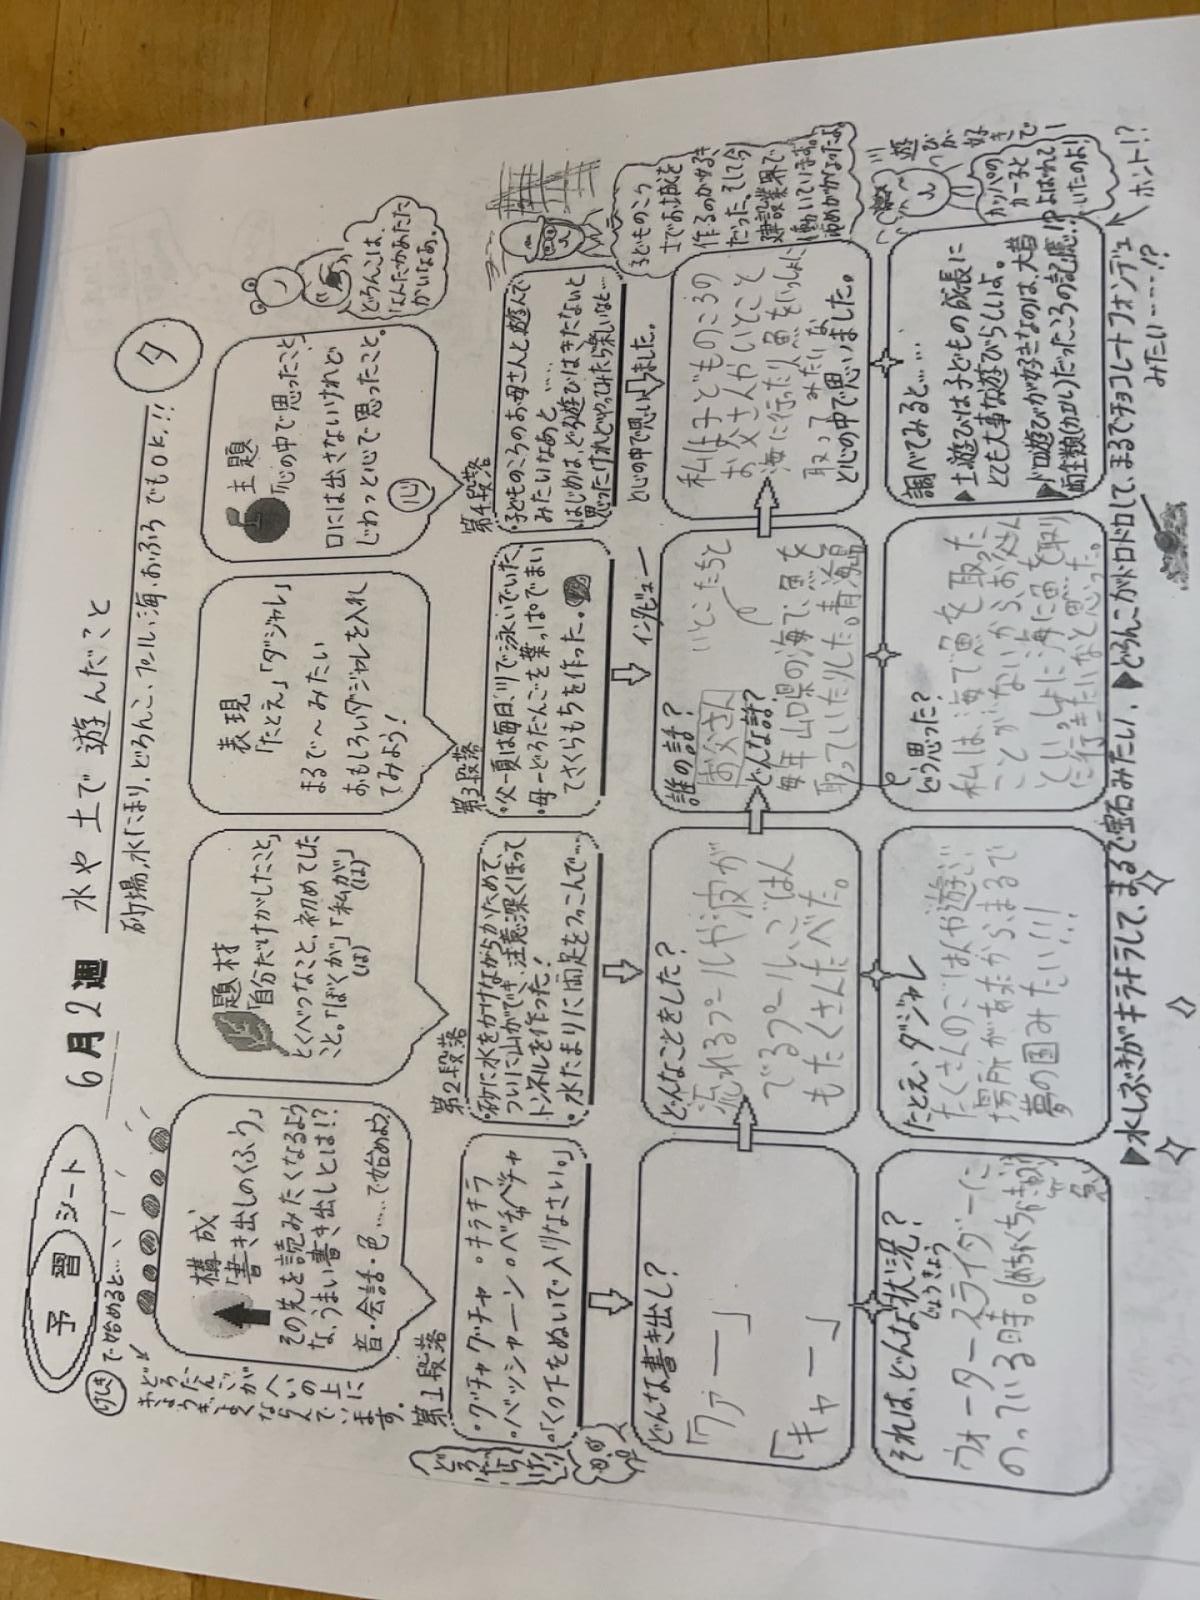 予習シート
6月2週
水や土で遊んだこと
砂場、水たまり、どろんこ、プール、海、おふろ でもOK!!
夕
けしき で始めると…
おどろだんごが
ぎょうぎよく
へいの上に
ならんでいます。
構成
「書き出しのくふう」
その先を読みたくなるよう
な、うまい書き出しとは!?
音・会話・色……で始めよう
題材
「自分だけがしたこと」
とくべつなこと、初めてした
こと。「ぼくが」「私が」
(は) (は)
表現
「たとえ」「ダジャレ」
まるで〜みたい
おもしろいダジャレを入れ
てみよう!
主題
「心の中で思ったこと」
口には出さないけれど
じわっと心で思ったこと。
どろんこは、
なんだかあたた
かいなあ。
第1段落
・グチャグチャ ・キラキラ
・バッシャーン ・ベチャベチャ
・「くつ下をぬいで入りなさい。」
第2段落
・砂に水をかけながらかためて、
ついに山ができ、注意深くほって
トンネルを作った!
・水たまりに両足をつっこんで…
第3段落
・父—夏は毎日、川で泳いでいた。
・母—どろだんごを葉っぱでまい
てさくらもちを作った。
第4段落
・子どものころのお母さんと遊んで
みたいなあと……
・はじめは、どろ遊びはきたないと
思ったけれどやってみたら楽しいなと…
インタビュー
と心の中で思いました。
子どものころ
土でお城を
作るのが好き
だった。そして今
建設業界で
働いています。
どんな書き出し?
「ワァー」
「キャー」
どんなことをした?
流れるプールや波が
でるプール、ごはん
もたくさんたべた。
誰の話?
お父さん
いとこたちと
どんな話?
毎年山口県の海で魚を
取っていたりした。青海島
私は子どものころの
お父さんやいとこと
海に行ったり魚をいっしょに
取ってみたいな
と心の中で思いました。
それは、どんな状況?
じょうきょう
ウォータースライダーに
のっている時。
たとえ・ダジャレ
たくさんのごはんや遊ぶ
場所があったから、まるで
夢の国みたい!!!
どう思った?
私は、海で魚を取った
ことがないから、お父さん
といっしょに海に魚を取り
に行きたいなと思った。
調べてみると……
▶土遊びは子どもの成長に
とても大事な遊びらしいよ。
▶ドロ遊びが好きなのは、大昔
両生類(カエル)だったころの記憶…!?
遊びが好きで
カッパの
カー子と
よばれて
いたのよ!
▶水しぶきがキラキラして、まるで宝石みたい!、▶どろんこがドロドロして、まるでチョコレートフォンデュ
みたい……!?
ホント!?